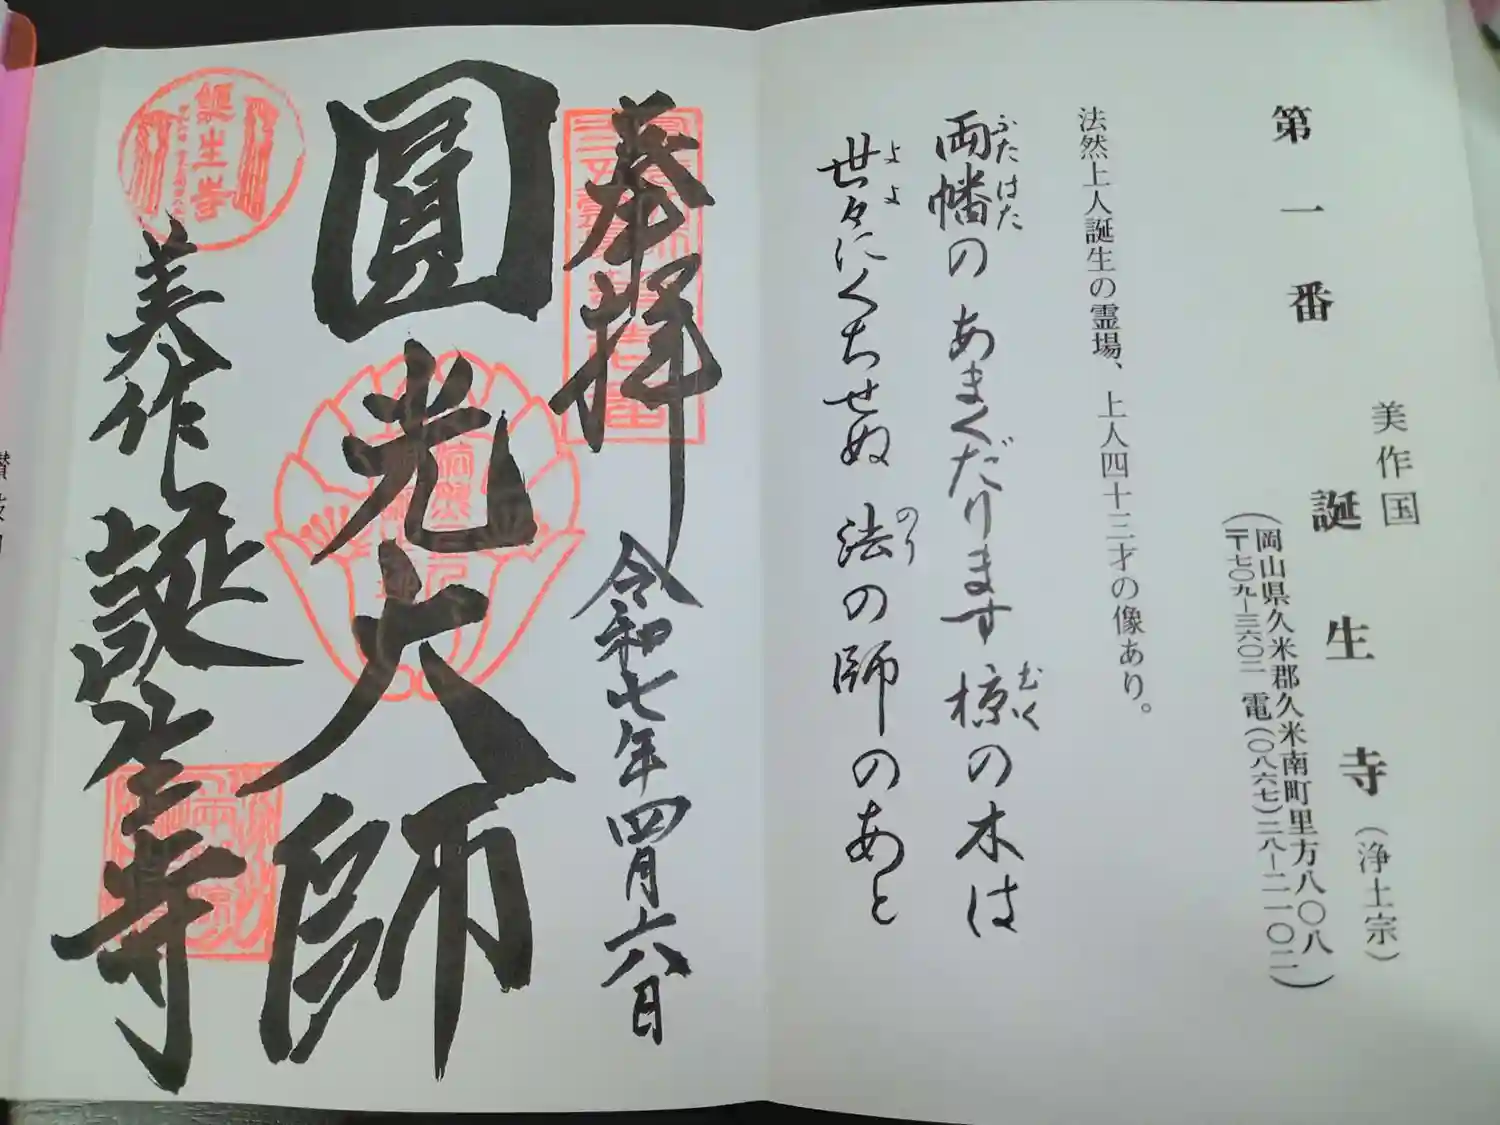 第一番
美作国
誕生寺(浄土宗)
(岡山県久米郡久米南町里方八〇八
〒七〇九ー三六〇二 電(〇八六七)二八ー二一〇二)
法然上人誕生の霊場、上人四十三才の像あり。
両幡のあまくだります椋の木は
ふたはた
むく
世々にくちせぬ法の師のあと
よよ
のり
奉拝
令和七年四月六日
圓光大師
美作誕生寺
誕生寺